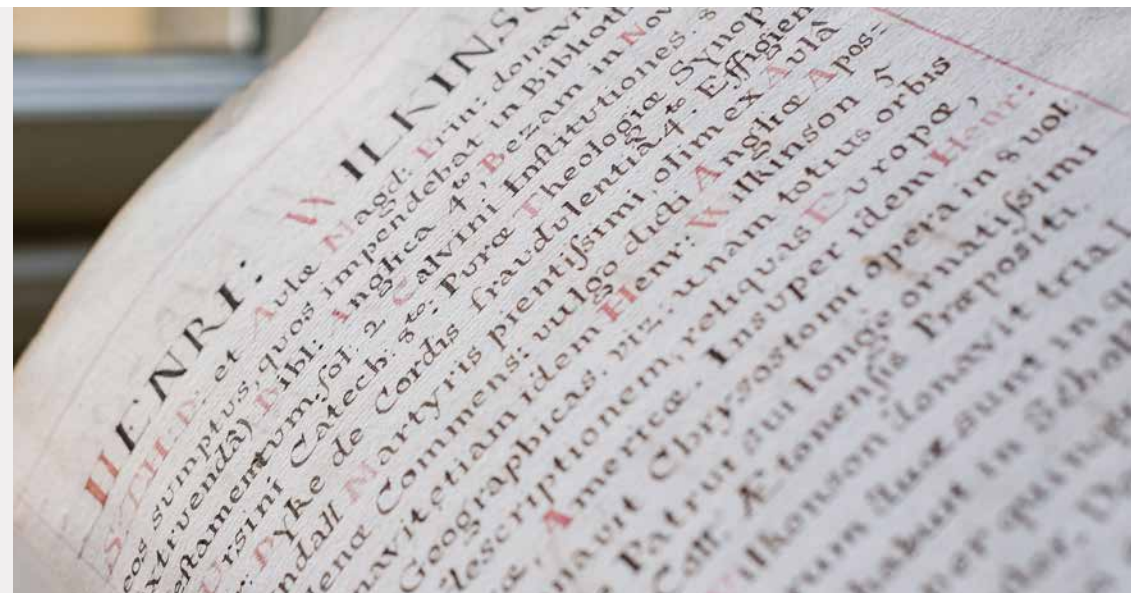 HENRI: WILKINSO
S. TH: D: et Aulæ Magd: Prin: donavit
eos sumptus, quos impendebat in Biblioth
xtruendâ) Bibl: Anglica 4to, Bezam in Nov
eſtamentum. fol: 2 Calvini Inſtitutiones. 8
Ursini Catech: 8to: Puræ Theologiæ Synop
: Pyke de Cordis fraudulentiâ 4to: Effigien
ndall Martyris pientiſsimi, olim ex Aulâ
enæ Commens: vulgo dicti Angliæ Apos=
navit etiam idem Henr: Wilkinson 5
Geographicas. viz: unam totius orbis
deſcriptionem, reliquas Europæ,
æ, Americæ. Insuper idem Henr:
navit Chrysostomi opera in 8 vol
Patrui sui longè ornatiſsimi
Coll. Ætonenſis Præpositi.
ilkonson donavit tria
rum duæ sunt in
in Schol